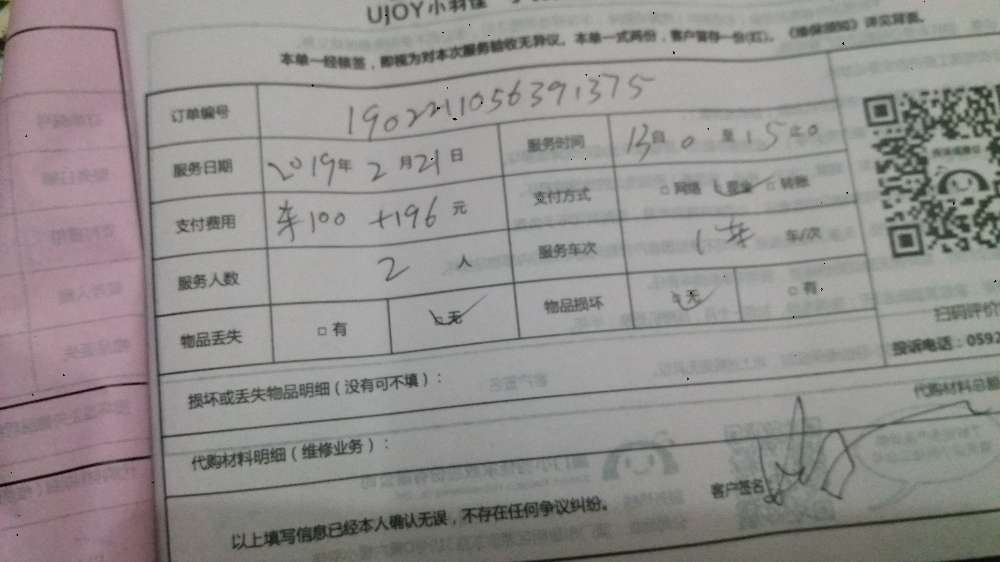 UJOY小羽佳
本单一经核签，即视为对本次服务验收无异议。本单一式两份，客户留存一份(红)。《维保须知》详见背面。
订单编号 1902211056391375
服务日期 2019年2月21日 服务时间 13点0至15点0
支付费用 车100+196元 支付方式 □网络 ☑现金 □转账
服务人数 2人 服务车次 1车 车/次
物品丢失 □有 ☑无 物品损坏 ☑无 □有
扫码评价
投诉电话：0592
损坏或丢失物品明细（没有可不填）：
代购材料总额
代购材料明细（维修业务）：
客户签名
以上填写信息已经本人确认无误，不存在任何争议纠纷。